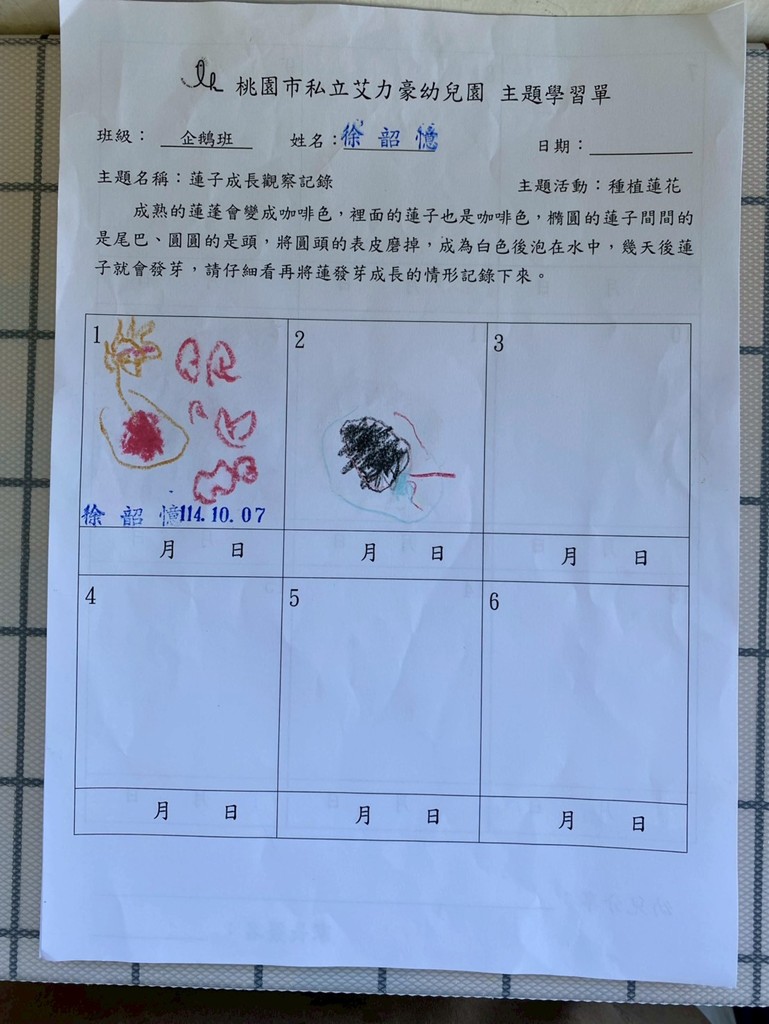 桃園市私立艾力豪幼兒園 主題學習單
班級： 企鵝班 姓名：徐韶憶 日期：
主題名稱：蓮子成長觀察記錄 主題活動：種植蓮花
成熟的蓮蓬會變成咖啡色，裡面的蓮子也是咖啡色，橢圓的蓮子間間的
是尾巴、圓圓的是頭，將圓頭的表皮磨掉，成為白色後泡在水中，幾天後蓮
子就會發芽，請仔細看再將蓮發芽成長的情形記錄下來。
1 2 3
徐韶憶114.10.07
月 日 月 日 月 日
4 5 6
月 日 月 日 月 日